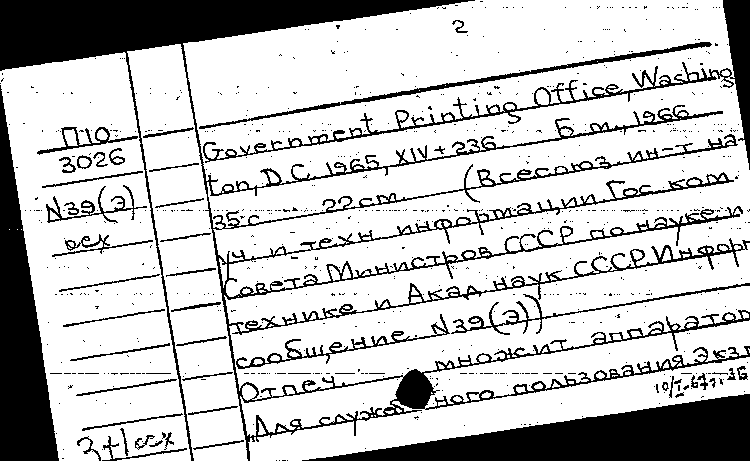 2
П10
3026
N39(Э)
осх
Government Printing Office, Washing
ton, D.C. 1965, XIV + 236. Б.м., 1966
35 с. 22 см. (Всесоюз. ин-т на-
уч. и техн информации. Гос. ком.
Совета Министров СССР по науке и
технике и Акад наук СССР. Информ
сообщение. N39(Э)).
Отпеч. множит аппаратом
„Для служебного пользования. Экз.
3+1 осх